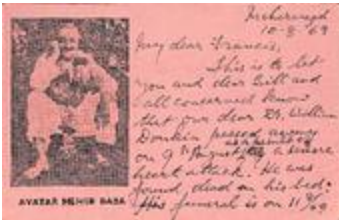 Meherazad
10-8-69
My dear Francis,
This is to let
you and dear Bill and
all concerned know
that our dear Dr. William
Donkin passed away
on 9th August, as a result of
a severe
heart attack. He was
found dead on his bed.
His funeral is on 11/8/69
AVATAR MEHER BABA